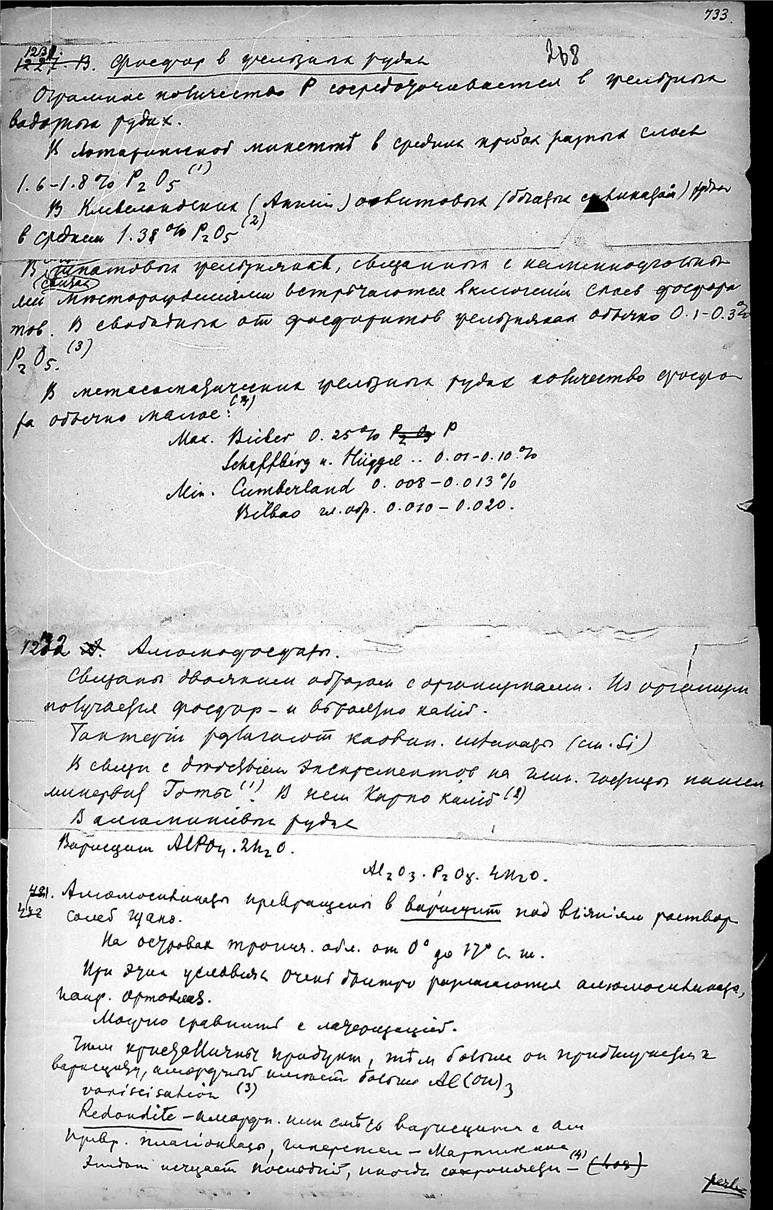 733.
1231.
1227. В. Фосфор в железных рудах 268
Огромное количество P сосредоточивается в железных
водных рудах.
В Лотарингской минетте в средних пробах разных слоев
1.6–1.8% P2O5 (1)
В Кливеландских (Англия) оолитовых (богатых силикатами) рудах
в среднем 1.38% P2O5 (2)
В шпатовых железняках, связанных с каменноугольны
ми месторождениями встречаются включения слоев фосфори
тов. В свободных от фосфоритов железняках обычно 0.1–0.3%
P2O5. (3)
В метасоматических железных рудах количество фосфо
ра обычно малое: (4)
Max. Bieber 0.25% P2O5 P
Schaffberg u. Hüggel .. 0.01–0.10%
Min. Cumberland 0.008–0.013%
Bilbao гл. обр. 0.010–0.020.
1232 Алюмофосфаты.
Связаны двояким образом с организмами. Из организм
получается фосфор – и вероятно калий.
Бактерии разлагают каолин. силикаты (см. Si)
В связи с действием экскрементов на
минервит Готье (1). В нем Карно калий (2)
В алюминиевых рудах
Варисцит AlPO4.2H2O.
Al2O3.P2O5.4H2O.
Алюмосиликаты превращены в варисцит под влиянием раствор
солей гуано.
На островах тропич. обл. от 0° до 17° с. ш.
При этих условиях очень быстро разлагаются алюмосиликаты,
напр. ортоклаз.
Можно сравнить с латеритацией.
Чем кристалличнее продукт, тем больше он приближается к
варисциту, аморфный имеет больше Al(OH)3
variscisation (3)
Redondite – аморфн. или смесь варисцита с
Превр. плагиоклазы, гиперстен – Мартиника
Эпидот исчезает последний, иногда сохраняется – (4)